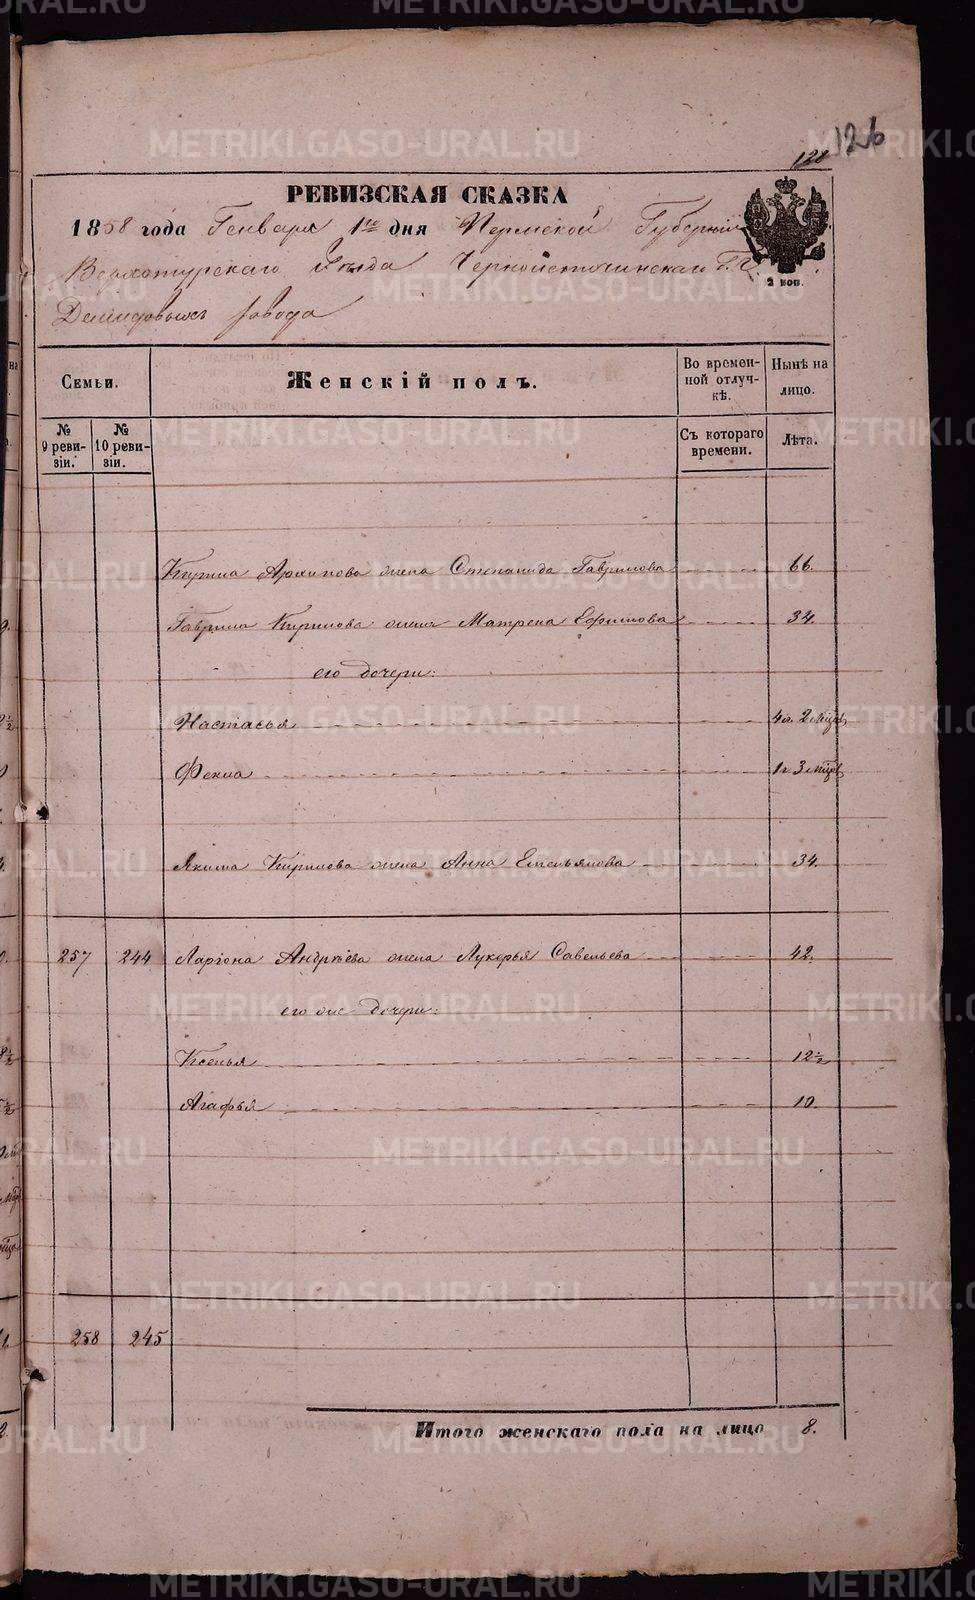 126
128
РЕВИЗСКАЯ СКАЗКА
1858 года Генваря 1го дня Пермской Губерніи
Верхотурскаго уѣзда Черноисточинскаго Г.Г.
Демидовыхъ завода
2 коп.
Семьи.
Женскій полъ.
Во времен-
ной отлуч-
кѣ.
Нынѣ на
лицо.
№
9 реви-
зіи.
№
10 реви-
зіи.
Съ котораго
времени.
Лѣта.
Архипова жена Степанида Гаврилова 66.
Гаврила Кирилова жена Матрена Ефимова 34.
его дочери:
Настасья 4г. 2 мѣсц.
Фекла 1г 3 мѣсц.
Якима Кирилова жена Анна Емельянова 34.
257 244 Ларіона Андрѣева жена Лукерья Савельева 42.
его же дочери:
Ксенья 12½
Агафья 10.
258 245
Итого женскаго пола на лицо 8.
METRIKI.GASO-URAL.RU